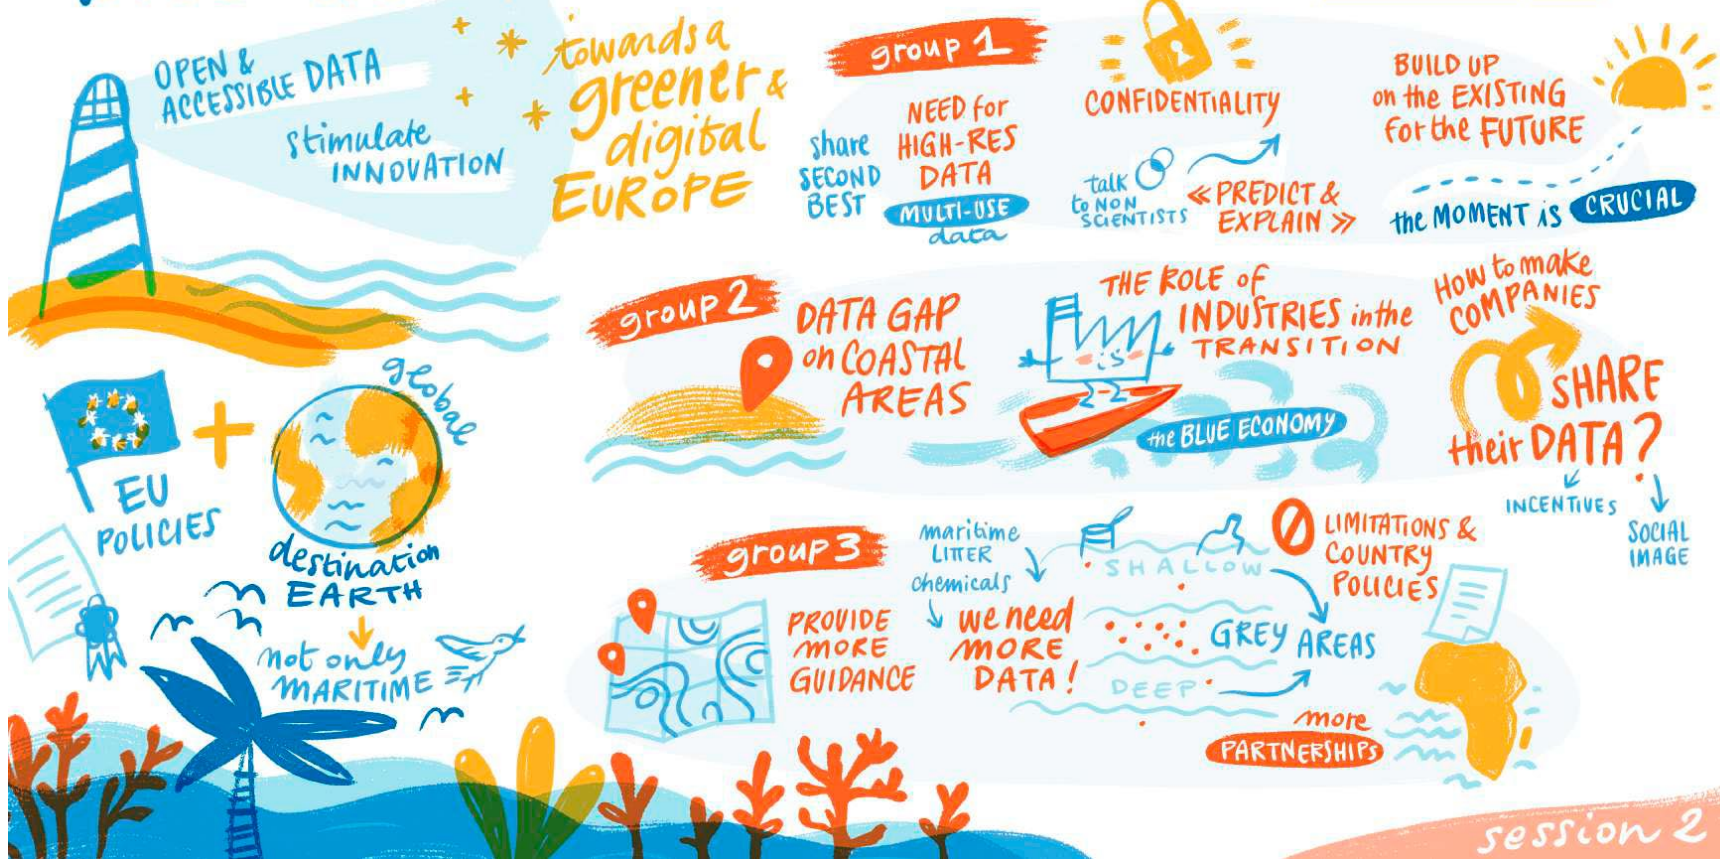 OPEN &
ACCESSIBLE DATA
stimulate
INNOVATION
towards a
greener &
digital
EUROPE
EU
POLICIES
global
destination
EARTH
not only
MARITIME
group 1
share
SECOND
BEST
NEED for
HIGH-RES
DATA
MULTI-USE
data
CONFIDENTIALITY
talk
to NON
SCIENTISTS
« PREDICT &
EXPLAIN »
BUILD UP
on the EXISTING
for the FUTURE
the MOMENT is CRUCIAL
group 2
DATA GAP
on COASTAL
AREAS
THE ROLE of
INDUSTRIES in the
TRANSITION
the BLUE ECONOMY
HOW to make
COMPANIES
SHARE
their DATA?
INCENTIVES
SOCIAL
IMAGE
group 3
PROVIDE
MORE
GUIDANCE
maritime
LITTER
chemicals
we need
MORE
DATA!
SHALLOW
GREY AREAS
DEEP
LIMITATIONS &
COUNTRY
POLICIES
more
PARTNERSHIPS
session 2